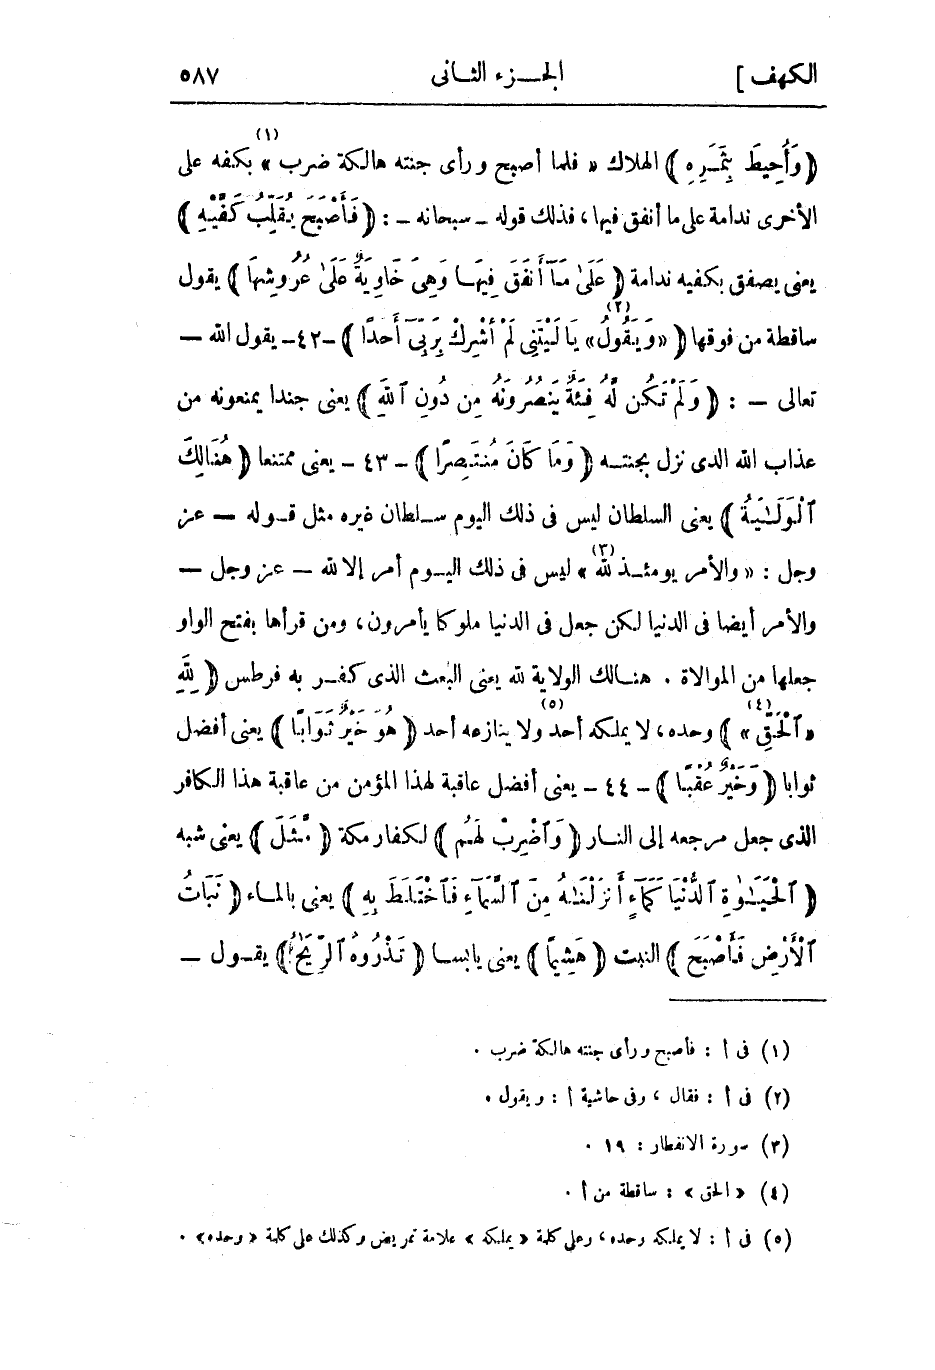 الكهف ] الجزء الثانى ٥٨٧
﴿ وَأُحِيطَ بِثَمَرِهِ ﴾ الهلاك « فلما أصبح ورأى جنته هالكة ضرب » (١) بكفه على
الأخرى ندامة على ما أنفق فيها ، فذلك قوله ـ سبحانه ـ : ﴿ فَأَصْبَحَ يُقَلِّبُ كَفَّيْهِ ﴾
يعنى يصفق بكفيه ندامة ﴿ عَلَىٰ مَآ أَنفَقَ فِيهَا وَهِىَ خَاوِيَةٌ عَلَىٰ عُرُوشِهَا ﴾ يقول
ساقطة من فوقها ﴿ « وَيَقُولُ » (٢) يَا لَيْتَنِى لَمْ أُشْرِكْ بِرَبِّىٓ أَحَدًا ﴾ ـ ٤٢ ـ يقول الله ـ
تعالى ـ : ﴿ وَلَمْ تَكُن لَّهُ فِئَةٌ يَنصُرُونَهُ مِن دُونِ ٱللَّهِ ﴾ يعنى جندا يمنعونه من
عذاب الله الذى نزل بجنته ﴿ وَمَا كَانَ مُنتَصِرًا ﴾ ـ ٤٣ ـ يعنى ممتنعا ﴿ هُنَالِكَ
ٱلْوَلَـٰيَةُ ﴾ يعنى السلطان ليس فى ذلك اليوم سلطان غيره مثل قوله ـ عز
وجل : « والأمر يومئذ لله » (٣) ليس فى ذلك اليوم أمر إلا لله ـ عز وجل ـ
والأمر أيضا فى الدنيا لكن جعل فى الدنيا ملوكا يأمرون ، ومن قرأها بفتح الواو
جعلها من الموالاة . هنالك الولاية لله يعنى البعث الذى كفر به فرطس ﴿ لِلَّهِ
« ٱلْحَقِّ » (٤) ﴾ وحده ، لا يملكه أحد (٥) ولا ينازعه أحد ﴿ هُوَ خَيْرٌ ثَوَابًا ﴾ يعنى أفضل
ثوابا ﴿ وَخَيْرٌ عُقْبًا ﴾ ـ ٤٤ ـ يعنى أفضل عاقبة لهذا المؤمن من عاقبة هذا الكافر
الذى جعل مرجعه إلى النار ﴿ وَٱضْرِبْ لَهُم ﴾ لكفار مكة ﴿ مَّثَلَ ﴾ يعنى شبه
﴿ ٱلْحَيَـٰوةِ ٱلدُّنْيَا كَمَآءٍ أَنزَلْنَـٰهُ مِنَ ٱلسَّمَآءِ فَٱخْتَلَطَ بِهِ ﴾ يعنى بالماء ﴿ نَبَاتُ
ٱلْأَرْضِ فَأَصْبَحَ ﴾ النبت ﴿ هَشِيمًا ﴾ يعنى يابسا ﴿ تَذْرُوهُ ٱلرِّيَـٰحُ ﴾ يقول ـ
(١) فى أ : فأصبح ورأى جنته هالكة ضرب .
(٢) فى أ : فقال ، وفى حاشية أ : ويقول .
(٣) سورة الانفطار : ١٩ .
(٤) « الحق » : ساقطة من أ .
(٥) فى أ : لا يملكه وحده ، وعلى كلمة « يملكه » علامة تمريض وكذلك على كلمة « وحده » .